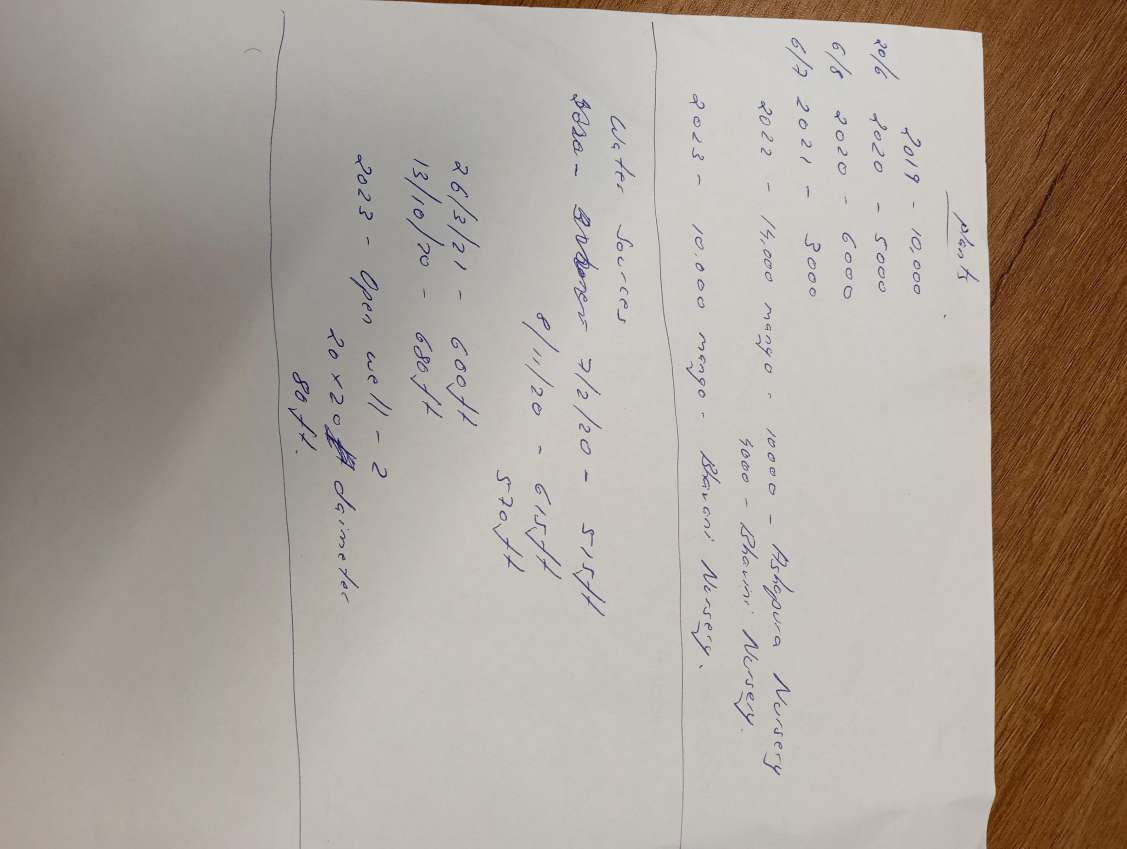 plants
2019 - 10,000
20/6 2020 - 5000
6/8 2020 - 6000
6/7 2021 - 3000
2022 - 14,000 mango - 10000 - Ashapura Nursery
4000 - Bhavini Nursery.
2023 - 10.000 mango - Bhavani Nursery.
Water Sources
7/2/20 - 515ft
8/11/20 - 615ft
570ft
26/3/21 - 600ft
13/10/20 - 680ft
2023 - Open well - 2
20 x 20 daimeter
80 ft.